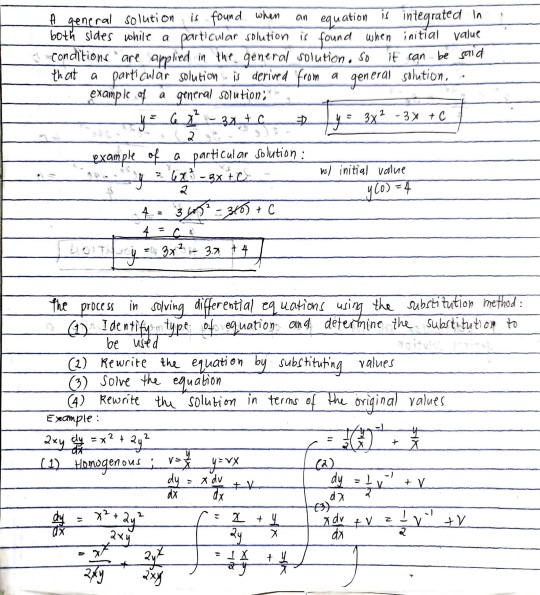 A general solution is found when an equation is integrated in
both sides while a particular solution is found when initial value
conditions are applied in the general solution. So it can be said
that a particular solution is derived from a general solution.
example of a general solution:
y = 6 x²/2 - 3x + C ⇒ y = 3x² - 3x + C
example of a particular solution:
y = 6x²/2 - 3x + C w/ initial value
y(0) = 4
4 = 3(0)² - 3(0) + C
4 = C
y = 3x² - 3x + 4
The process in solving differential equations using the substitution method:
(1) Identify type of equation and determine the substitution to
be used
(2) Rewrite the equation by substituting values
(3) Solve the equation
(4) Rewrite the solution in terms of the original values
Example:
2xy dy/dx = x² + 2y²
(1) Homogenous ; v = y/x y = vx
dy/dx = x dv/dx + v
dy/dx = x² + 2y² / 2xy
= x²/2xy + 2y²/2xy
= x/2y + y/x
= 1/2 x/y + y/x
= 1/2 (y/x)⁻¹ + y/x
(2)
dy/dx = 1/2 v⁻¹ + v
(3)
x dv/dx + v = 1/2 v⁻¹ + v